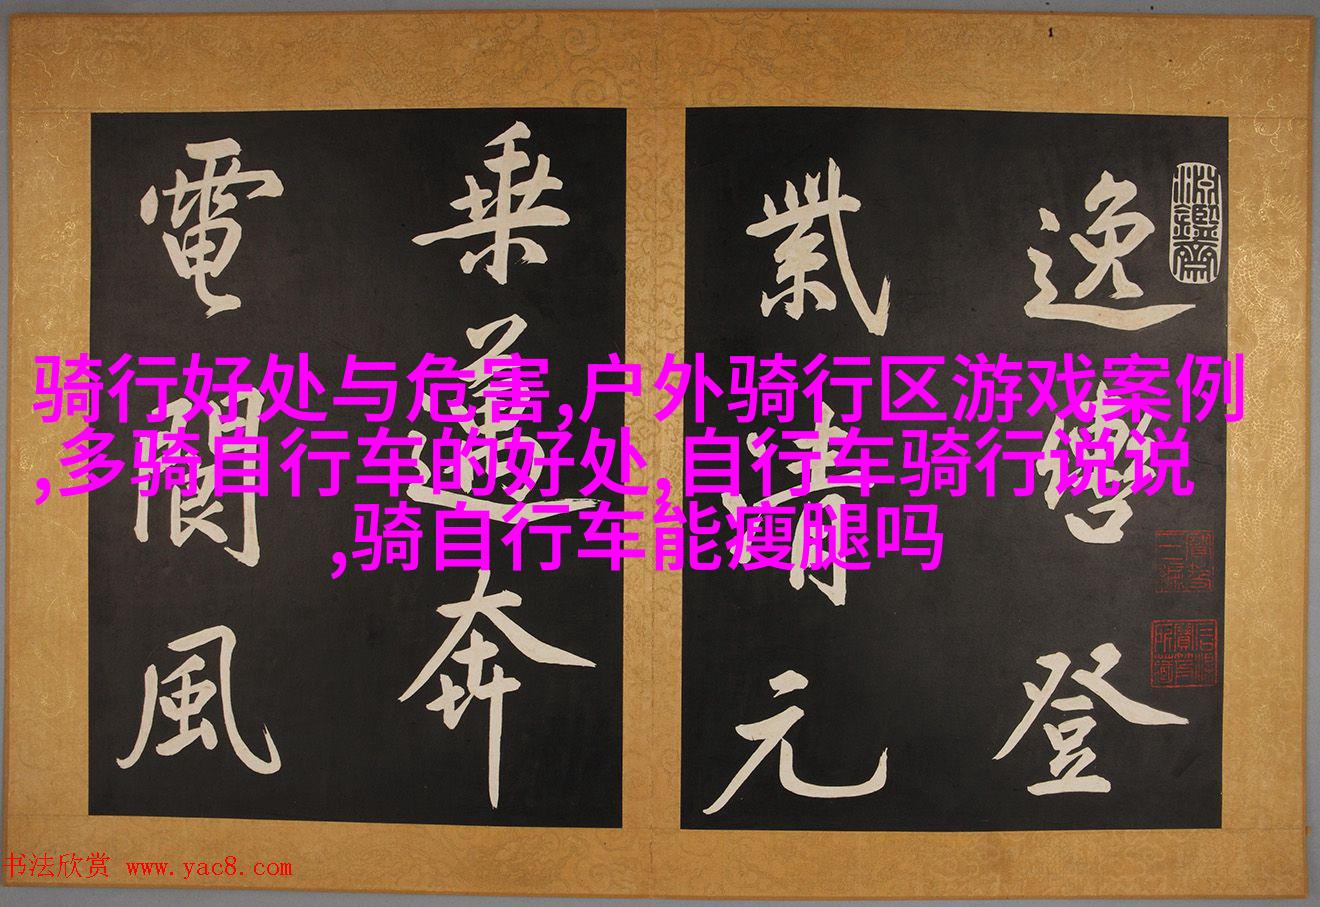 逸轡登
紫清元
乘遺奔
電閬風
骑行好处与危害,户外骑行区游戏案例
,多骑自行车的好处,自行车骑行说说
,骑自行车能瘦腿吗
书法欣赏 www.yac8.com